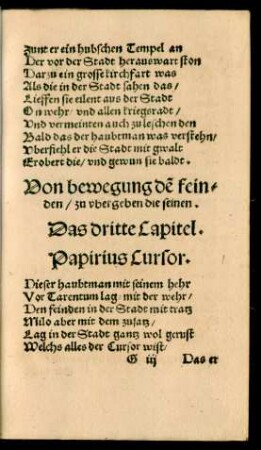 zunt er ein hubschen Tempel an
Der vor der Stadt herauswart ston
Darzu ein grosse kirchfart was
Als die in der Stadt sahen das/
Lieffen sie eilent aus der Stadt
On wehr/ vnd allen kriegsradt/
Vnd vermeinten auch zu leschen den
Bald das der haubtman was verstehn/
Vberfiehl er die Stadt mit gwalt
Erobert die/ vnd gewun sie baldt.
Von bewegung dē fein⸗
den/ zu vbergeben die seinen.
Das dritte Capitel.
Papirius Cursor.
Dieser haubtman mit seinem hehr
Vor Tarentum lag/ mit der wehr/
Den feinden in der Stadt mit tratz
Milo aber mit dem zusatz/
Lag in der Stadt gantz wol gerust
Welchs alles der Cursor wist/
G iij Das er